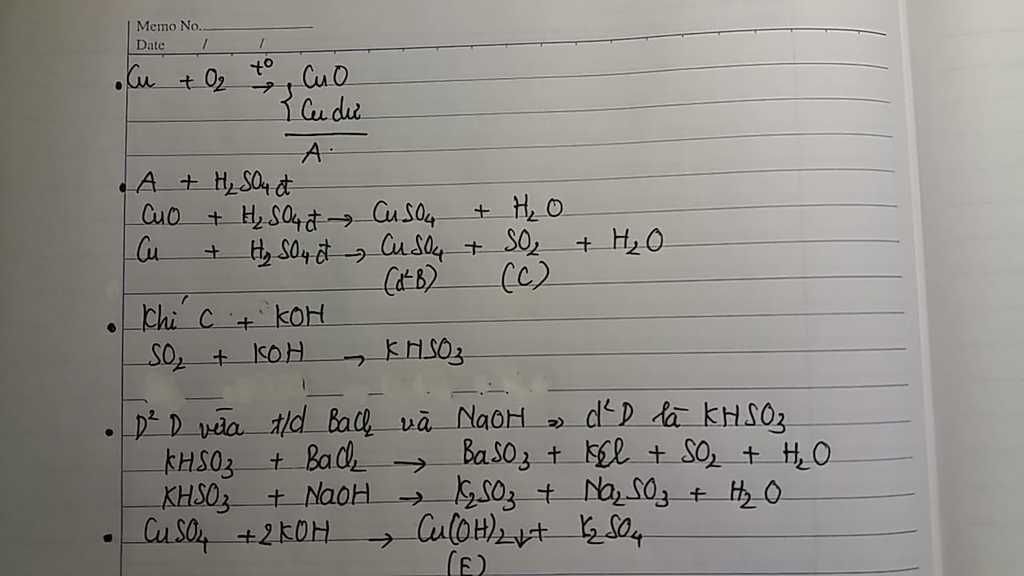 Memo No.
Date / /
• Cu + O₂ →(t°) { CuO
{ Cu dư
A
• A + H₂SO₄ đ
CuO + H₂SO₄ đ → CuSO₄ + H₂O
Cu + H₂SO₄ đ → CuSO₄ + SO₂ + H₂O
(d²B) (C)
• Khí C + KOH
SO₂ + KOH → KHSO₃
• D² D vừa t/d BaCl₂ và NaOH => d² D là KHSO₃
KHSO₃ + BaCl₂ → BaSO₃ + KCl + SO₂ + H₂O
KHSO₃ + NaOH → K₂SO₃ + Na₂SO₃ + H₂O
• CuSO₄ + 2KOH → Cu(OH)₂↓ + K₂SO₄
(E)